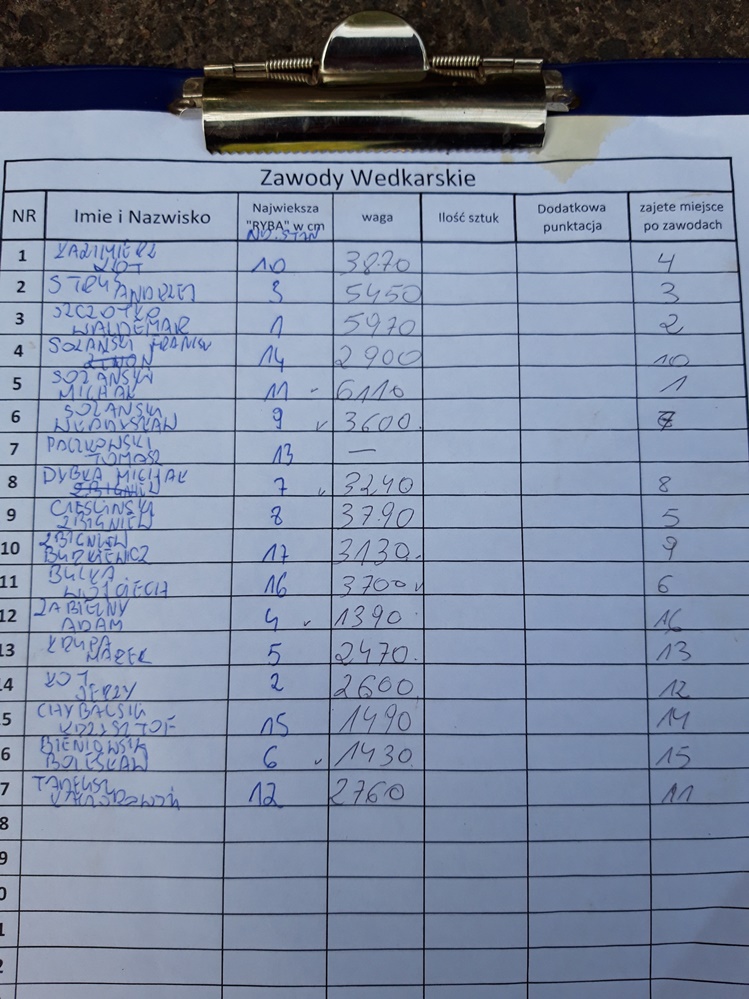 Zawody Wedkarskie
NR Imie i Nazwisko Największa "RYBA" w cm waga Ilość sztuk Dodatkowa punktacja zajete miejsce po zawodach
NR. STAN
1 KAZIMIERZ KOT 10 3870 4
2 STRUŚ ANDRZEJ 3 5450 3
3 SZCZOTKO WALDEMAR 1 5970 2
4 SOLAŃSKI 14 2900 10
5 SOLAŃSKI MICHAŁ 11 - 6110 1
6 SOLAŃSKI WŁADYSŁAW 9 3600 7
7 PACZKOWSKI TOMASZ 13 —
8 DYBKA MICHAŁ ZBIGNIEW 7 3240 8
9 CIEŚLIŃSKI ZBIGNIEW 8 3790 5
10 ZBIGNIEW BUDKIEWICZ 17 3130 9
11 BUŁKA WOJCIECH 16 3700 6
12 ZABIELNY ADAM 4 1390 16
13 KRUPA MAREK 5 2470 13
4 KOT JERZY 2 2600 12
5 15 1490 14
6 BOLESŁAW 6 1430 15
7 TADEUSZ 12 2760 11
8
9
0
1
2